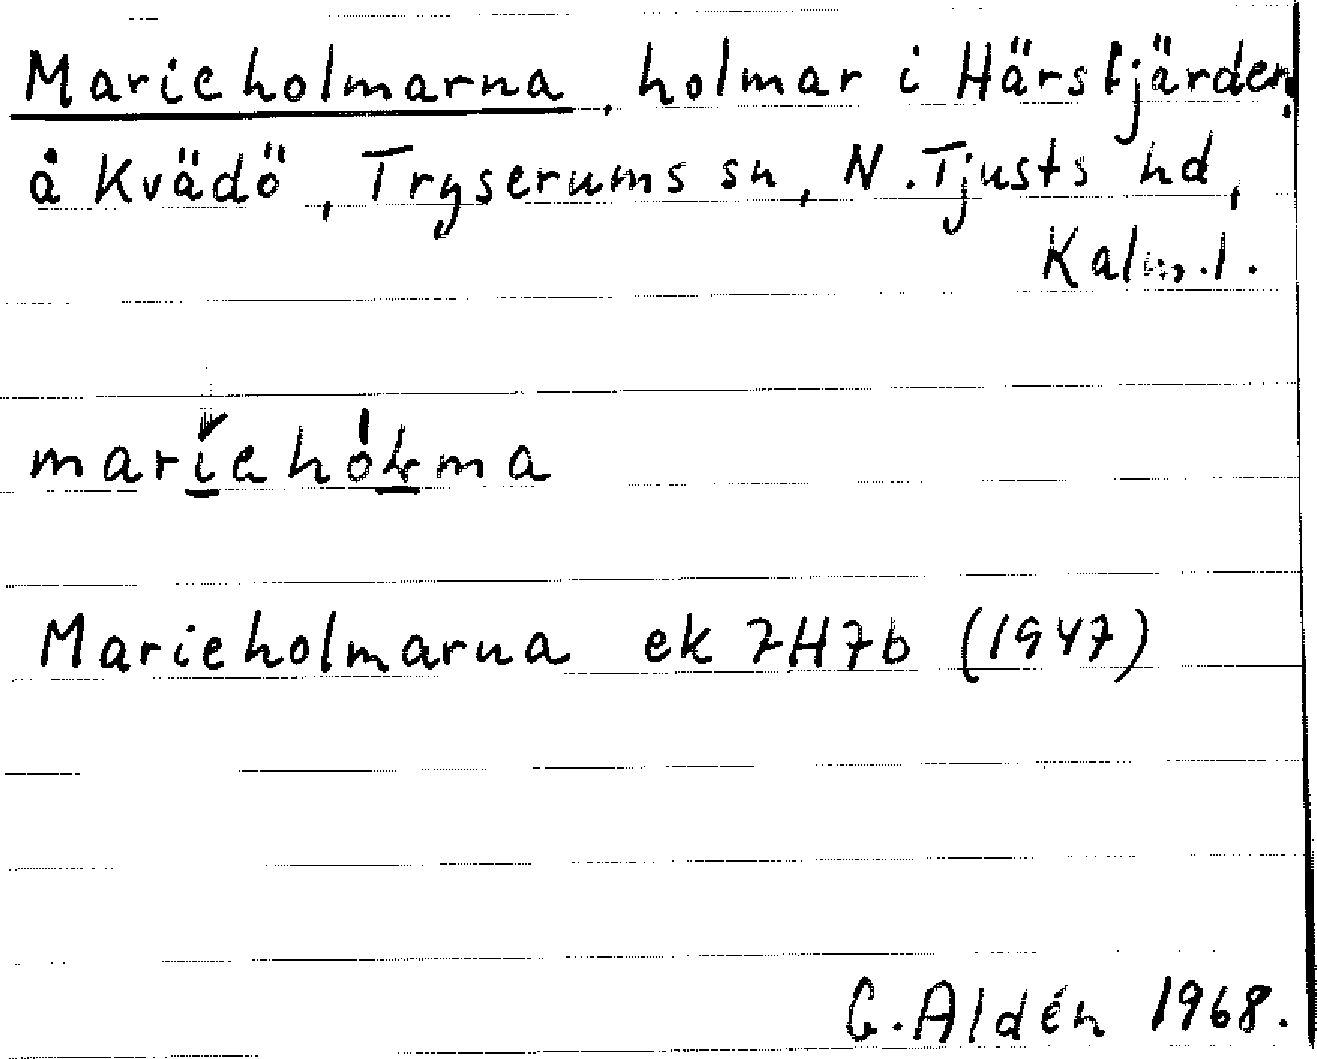 Marieholmarna, holmar i Härsfjärden,
å Kvädö, Tryserums sn, N. Tjusts hd,
Kalm. l.
Marieholmarna ek 7H7b (1947)
G. Aldén 1968.